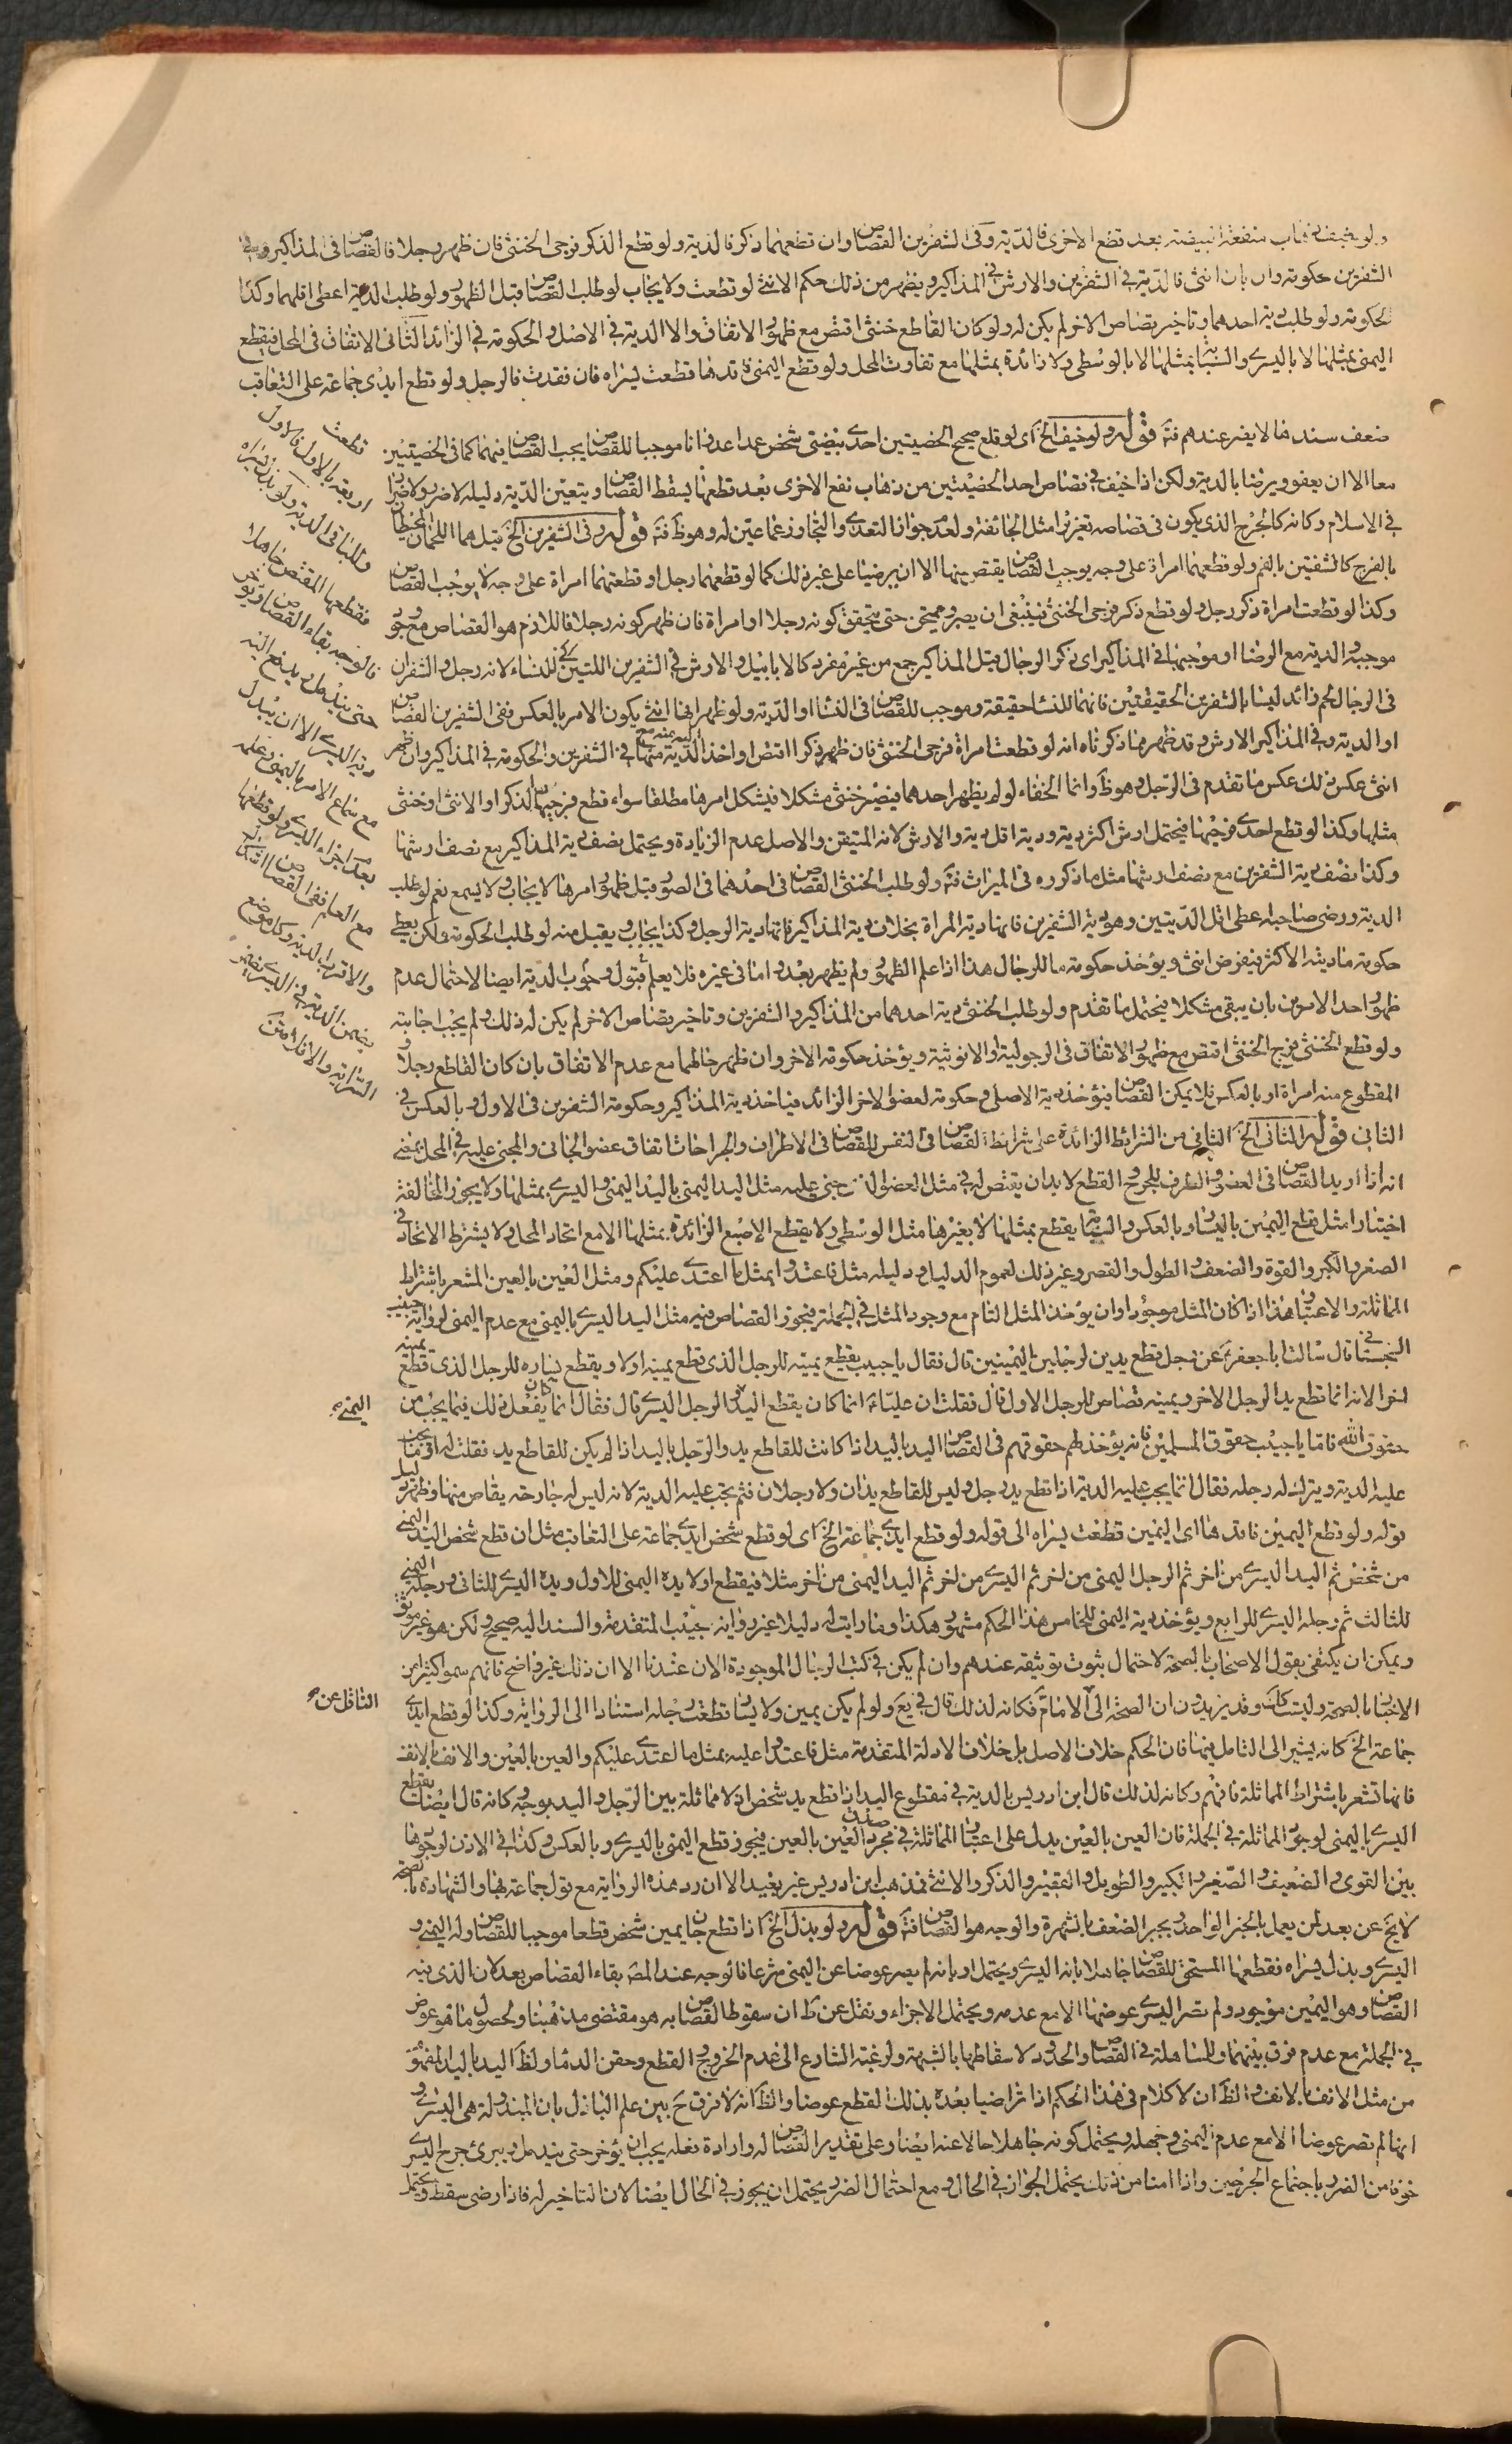 ولو خيف ذهاب منفعة البيضة بعد قطع الاخرى فالدية وفى الشفرين القصاص وان قطعهما ذكر فالدية ولو قطع الذكر فرجى الخنثى فان ظهر رجلا فالقصاص فى المذاكير وفى
الشفرين حكومة وان بان انثى فالدية فى الشفرين والارش فى المذاكير ويظهر من ذلك حكم الانثى لو قطعت ولا يجاب لو طلب القصاص قبل الظهور ولو طلب الدية اعطى اقلهما وكذا
الحكومة ولو طلب دية احدهما وتاخير قصاص الاخر لم يكن له ولو كان القاطع خنثى اقتص مع ظهور الاتفاق والا الدية فى الاصل والحكومة فى الزائد الثانى الاتفاق فى المحل فيقطع
اليمنى بمثلها لا باليسرى والسبابة بمثلها لا بالوسطى ولا زائدة بمثلها مع تفاوت المحل ولو قطع اليمنى فاقدها قطعت يسراه فان فقدت فالرجل ولو قطع ايدى جماعة على التعاقب
قطعت
اربعة بالاول فالاول
وللباقى الدية ولو بذل يسراه
فقطعها المقتص جاهلا
فالوجه بقاء القصاص ويؤخر
حتى يندمل ويدفع اليه
دية اليسرى الا ان يبذل
مع سماع الامر باليمنى وعلمه
بعدم اجزاء اليسرى ولو قطعها
مع العلم ففى القصاص اشكال
والاقرب الدية وكل موضع
يضمن الدية فى اليسرى يضمن
السراية والا فلا
ضعف سندها لا يضر عندهم فتأمل قوله ولو خيف الخ اى لو قلع صحيح الخصيتين احدى بيضتى شخص عمدا عدوانا موجبا للقصاص يجب القصاص فيهما كما فى الخصيتين
معا الا ان يعفو ويرضا بالدية ولكن اذا خيف فى قصاص احد الخصيتين من ذهاب نفع الاخرى بعد قطعها يسقط القصاص ويتعين الدية دليله لا ضرر ولا ضرار
فى الاسلام وكانه كالجرح الذى يكون فى قصاصه تغرير مثل الجائفة ولعدم جواز التعدى والتجاوز عما عين له وهو ظ فتأمل قوله وفى الشفرين الخ قيل هما اللحمان المحيطان
بالفرج كالشفتين بالفم ولو قطعهما امراة على وجه يوجب القصاص يقتص منها الا ان يرضيا على غير ذلك كما لو قطعهما رجل او قطعتهما امراة على وجه لا يوجب القصاص
وكذا لو قطعت امراة ذكر رجل ولو قطع ذكر فرجى الخنثى فينبغى ان يصبر حتى يتحقق كونه رجلا او امراة فان ظهر كونه رجلا فاللازم هو القصاص مع وجود
موجبه والدية مع الرضا او موجبها فى المذاكير اى ذكر الرجال قيل المذاكير جمع من غير مفرد كالابابيل والارش فى الشفرين اللتين للنساء لانه رجل والشفران
فى الرجال لحم زائد ليسا بالشفرين الحقيقتين فانهما للنساء حقيقة وموجب للقصاص فى النساء او الدية ولو ظهر انها انثى يكون الامر بالعكس ففى الشفرين القصاص
او الدية وفى المذاكير الارش وقد ظهر مما ذكرناه انه لو قطعت امراة فرجى الخنثى فان ظهر ذكرا اقتص او اخذ الدية منها فى الشفرين والحكومة فى المذاكير وان ظهر
انثى عكس ذلك عكس ما تقدم فى الرجل وهو ظ وانما الخفاء لو لم يظهر احدهما فيصير خنثى مشكلا فيشكل امرها مطلقا سواء قطع فرجيها الذكر او الانثى او خنثى
مثلها وكذا لو قطع احدى فرجيها فيحتمل ارش اكثر دية ودية اقل دية والارش لانه المتيقن والاصل عدم الزيادة ويحتمل نصف دية المذاكير مع نصف ارشها
وكذا نصف دية الشفرين مع نصف ارشها مثل ما ذكروه فى الميراث فتأمل ولو طلب الخنثى القصاص فى احدهما فى الصور قبل ظهور امرها لا يجاب ولا يسمع نعم لو طلب
الدية ورضى صاحبه اعطى اقل الديتين وهو دية الشفرين فانها دية المراة بخلاف دية المذاكير فانها دية الرجل وكذا يجاب ويقبل منه لو طلب الحكومة ولكن يعطى
حكومة مادية الاكثر فيفرض انثى ويؤخذ حكومة ما للرجال هذا اذا علم الظهور ولم يظهر بعد واما فى غيره فلا يعلم قبول وجوب الدية ايضا لاحتمال عدم
ظهور احد الامرين بان يبقى مشكلا فيحتمل ما تقدم ولو طلب الخنثى دية احدهما من المذاكير والشفرين وتاخير قصاص الاخر لم يكن له ذلك ولم يجب اجابته
ولو قطع الخنثى فرج الخنثى اقتص مع ظهور الاتفاق فى الرجولية والانوثية ويؤخذ حكومة الاخر وان ظهر حالهما مع عدم الاتفاق بان كان القاطع رجلا و
المقطوع منه امراة او بالعكس فلا يمكن القصاص فيؤخذ دية الاصلى وحكومة لعضو الاخر الزائد فياخذ دية المذاكير وحكومة الشفرين فى الاول وبالعكس فى
الثانى قوله الثانى الخ الثانى من الشرائط الزائدة على شرائط القصاص فى النفس للقصاص فى الاطراف والجراحات اتفاق عضو الجانى والمجنى عليه فى المحل بمعنى
انه اذا اريد القصاص فى العضو والطرف للجروح والقطع لا بد ان يقتص له فى مثل العضو الذى جنى عليه مثل اليد اليمنى باليد اليمنى واليسرى بمثلها ولا يجوز المخالفة
اختيارا مثل قطع اليمين باليسار وبالعكس والسبابة يقطع بمثلها لا بغيرها مثل الوسطى ولا يقطع الاصبع الزائدة بمثلها الا مع اتحاد المحل ولا يشترط الاتحاد فى
الصغر والكبر والقوة والضعف والطول والقصر وغير ذلك لعموم الدليل ودليله مثل فاعتدوا بمثل ما اعتدى عليكم ومثل العين بالعين المشعر باشتراط
المماثلة والاعتبار هذا اذا كان المثل موجودا وان يؤخذ المثل التام مع وجود المثل فى الجملة فيجوز القصاص فيه مثل اليد اليسرى باليمنى مع عدم اليمنى لرواية حبيب
السجستانى قال سالت ابا جعفر ع عن رجل قطع يدين لرجلين اليمينين قال فقال يا حبيب يقطع يمينه للرجل الذى قطع يمينه اولا ويقطع يساره للرجل الذى قطع يمينه
اخرا لانه انما قطع يد الرجل الاخر ويمينه قصاص للرجل الاول قال فقلت ان عليا ع انما كان يقطع اليد اليمنى والرجل اليسرى قال فقال انما كان يفعل ذلك فيما يجب من
حقوق الله فاما يا حبيب حقوق المسلمين فانه يؤخذ لهم حقوقهم فى القصاص اليد باليد اذا كانت للقاطع يد والرجل باليد اذا لم يكن للقاطع يد فقلت له او ما يجب
عليه الدية ويترك له رجله فقال انما يجب عليه الدية اذا قطع يد رجل وليس للقاطع يدان ولا رجلان فثم يجب عليه الدية لانه ليس له جارحة يقاص منها وظهر دليل
قوله ولو قطع اليمين فاقدها اى اليمين قطعت يسراه الى قوله ولو قطع ايدى جماعة الخ اى لو قطع شخص ايدى جماعة على التعاقب مثل ان قطع شخص اليد اليمنى
من شخص ثم اليد اليسرى من اخر ثم الرجل اليمنى من اخر ثم اليسرى من اخر ثم اليد اليمنى من اخر مثلا فيقطع اولا يده اليمنى للاول ويده اليسرى للثانى ورجله اليمنى
للثالث ثم رجله اليسرى للرابع ويؤخذ دية اليمنى للخامس هذا الحكم مشهور هكذا وما رايت له دليلا غير رواية حبيب المتقدمة والسند اليه صحيح ولكن هو غير موثق
ويمكن ان يكتفى بقول الاصحاب بالصحة لاحتمال ثبوت توثيقه عندهم وان لم يكن فى كتب الرجال الموجودة الان عندنا الا ان ذلك غير واضح فانهم سموا كثيرا من
الاخبار بالصحة وليست كك وقد يريدون ان الصحة الى الثاقل عن الامام فكانه لذلك قال فى يع ولو لم يكن يمين ولا يسار قطعت رجله استنادا الى الرواية وكذا لو قطع ايدى
جماعة الخ كانه يشير الى التامل فيها فان الحكم خلاف الاصل بل خلاف الادلة المتقدمة مثل فاعتدوا عليه بمثل ما اعتدى عليكم والعين بالعين والانف بالانف
فانها تشعر باشتراط المماثلة فافهم وكانه لذلك قال ابن ادريس بالدية فى مقطوع اليد اذا قطع يد شخص اذ لا مماثلة بين الرجل واليد بوجه كانه قال ايضا يقطع
اليسرى باليمنى لوجود المماثلة فى الجملة فان العين بالعين يدل على اعتبار المماثلة فى مجرد صدق العين بالعين فيجوز قطع اليمنى باليسرى وبالعكس وكذا فى الاذن لوجودها
بين القوى والضعيف والصغير والكبير والطويل والقصير والذكر والانثى فذهب ابن ادريس غير بعيد الا ان رد هذه الرواية مع قول جماعة بها والشهادة بالصحة
لا يخ عن بعد لمن يعمل بالخبر الواحد ويجبر الضعف بالشهرة والوجه هو القصاص فتأمل قوله ولو بذل الخ اذا قطع جان يمين شخص قطعا موجبا للقصاص وله اليمنى و
اليسرى وبذل يسراه فقطعها المستحق للقصاص جاهلا بانه اليسرى ويحتمل او بانه لم يصر عوضا عن اليمنى شرعا فالوجه عند المص بقاء القصاص بعد لان الذى فيه
القصاص وهو اليمين موجود ولم تصر اليسرى عوضها الا مع عدمه ويحتمل الاجزاء ونقل عن ط ان سقوط القصاص به هو مقتضى مذهبنا ولحصول ما هو عوض
فى الجملة مع عدم فرق بينهما وللمساهلة فى القصاص والحدود لاسقاطها بالشبهة ولرغبة الشارع الى عدم الخروج والقطع وحقن الدماء ولظ اليد باليد المفهوم
من مثل الانف بالانف والظ ان لا كلام فى هذا الحكم اذا تراضيا بعده بذلك القطع عوضا والظ انه لا فرق ح بين علم الباذل بان المبذولة هى اليسرى و
انها لم تصر عوضا الا مع عدم اليمنى وجهله ويحتمل كونه جاهلا حالا عنه ايضا وعلى تقدير القصاص له وارادة فعله يجب ان يؤخر حتى يندمل ويبرئ جرح اليسرى
خوفا من الضرر باجتماع الجرحين واذا امنا من ذلك يحتمل الجواز فى الحال ومع احتمال الضرر يحتمل ان يجوز فى الحال ايضا لان التاخير له فاذا رضى سقط ويحتمل